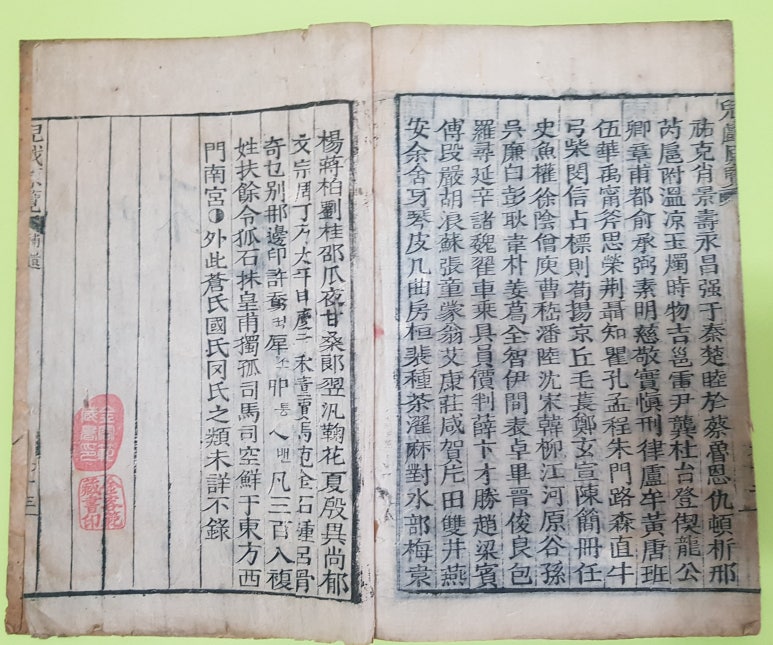 兒戲原覽
祐克肖景壽永昌强于秦楚睦於蔡曹恩仇頓析邢
芮扈附溫凉玉燭時物吉邕雷尹龔杜台登偰龍公
卿章甫都俞承弼素明慈敬實愼刑律盧牟黃唐班
伍華禹甯斧思榮荆聶知瞿孔孟程朱門路森直牛
弓柴閔信占標則荀揚京丘毛萇鄭玄宣陳簡冊任
史魚權徐陰僧庾曹嵇潘陸沈宋韓柳江河原谷孫
吳廉白彭耿韋朴姜葛全智伊間表卓畢晋俊良包
羅尋延辛諸魏翟車乘具員價判薛卞才勝趙梁賓
傅段嚴胡浪蘇張童蒙翁艾康莊咸賀片田雙井燕
安余舍牙琴皮几曲房桓裴種荼濯麻對水部梅袁
楊蔣柏劉桂邵瓜夜甘桑郞翌汎鞠花夏殷異尚郁
文宗周丁方太平日慶馬范金石鍾呂骨
奇乜别邢邊印許犀凡三百入複
姓扶餘令狐石抹皇甫獨孤司馬司空鮮于東方西
門南宮外此蒼氏國氏冈氏之類未詳不錄
兒戲原覽
補遺
藏書印